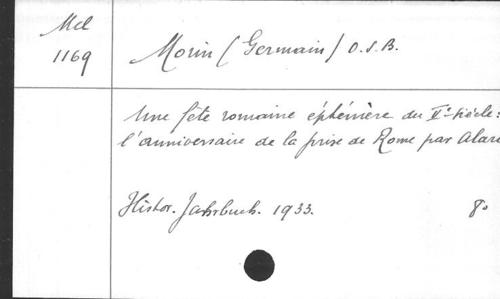 Mel
1169
Morin (Germain) O.S.B.
Une fête romaine éphémère du Ve siècle:
l'anniversaire de la prise de Rome par Alaric
Histor. Jahrbuch. 1933. 8°